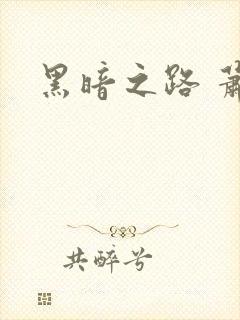 黑暗之路
共醉兮